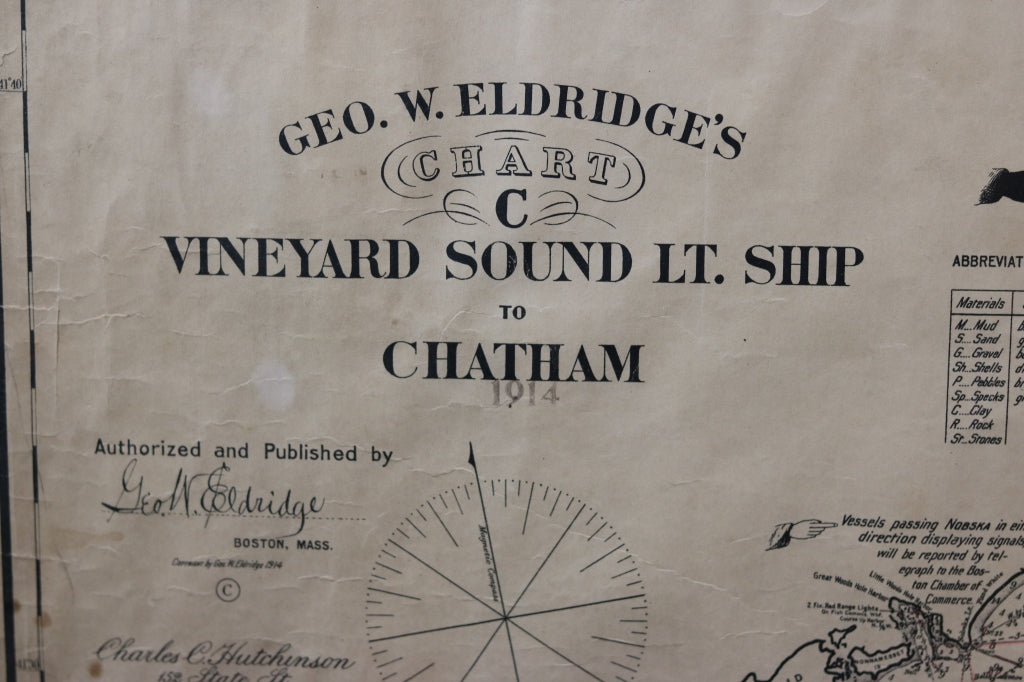 41°40
GEO. W. ELDRIDGE'S
CHART
C
VINEYARD SOUND LT. SHIP
TO
CHATHAM
1914
Authorized and Published by
Geo. W. Eldridge
BOSTON, MASS.
Copyright by Geo. W. Eldridge 1914
©
Charles C. Hutchinson
152 State St.
Magnetic Compass
ABBREVIAT
Materials
M...Mud
S...Sand
G...Gravel
Sh...Shells
P...Pebbles
Sp...Specks
C...Clay
R...Rock
St...Stones
Vessels passing NOBSKA in eit
direction displaying signals
will be reported by tel-
egraph to the Bos-
ton Chamber of
Commerce.
Great Woods Hole Harbor
Little Woods Hole
2 Fix. Red Range Lights
NONAMESSET